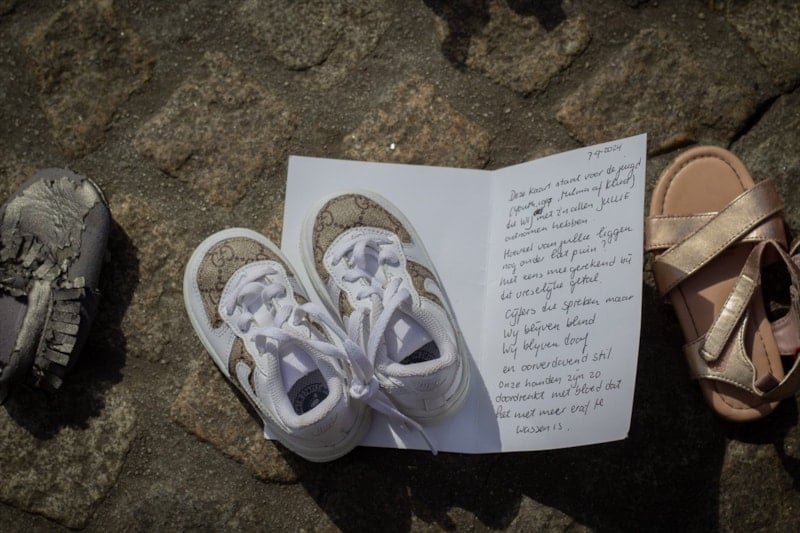 7-9-2024
Deze kaart staat voor de jeugd
die wij met z'n allen JULLIE
ontnomen hebben.
Hoeveel van jullie liggen
nog onder het puin?
niet eens meegerekend bij
dit vreselijke getal.
Cijfers die spreken maar
wij blijven blind
wij blijven doof
en oorverdovend stil
onze handen zijn zo
doordrenkt met bloed dat
het niet meer eraf te
wassen is.